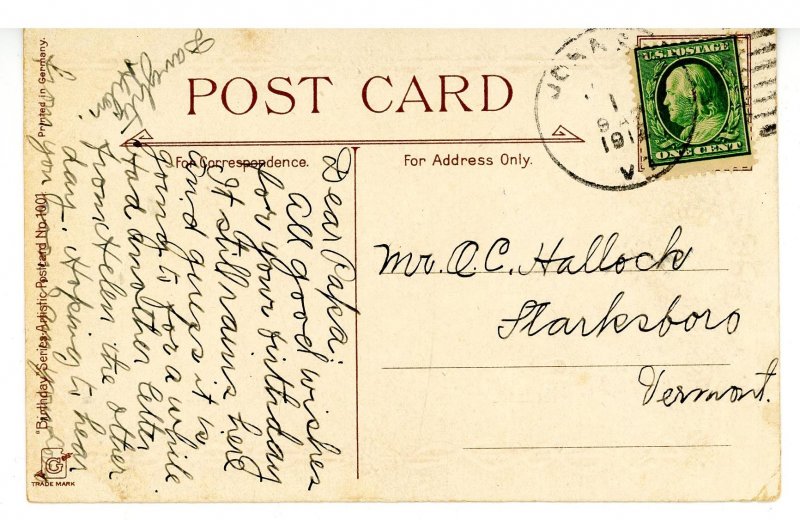 POST CARD
For Correspondence.
For Address Only.
Printed in Germany.
"Birthday" Series Artistic Postcard No. 1001
TRADE MARK
U.S. POSTAGE
ONE CENT
JONA
1
9 A
191
V
Dear Papa;
All good wishes
for your birthday
It still rains here
and guess it is
going to for a while.
Had another letter
from Helen the other
day. Hoping to hear
from you
Daughter
Mr. O. C. Hallock
Starksboro
Vermont.